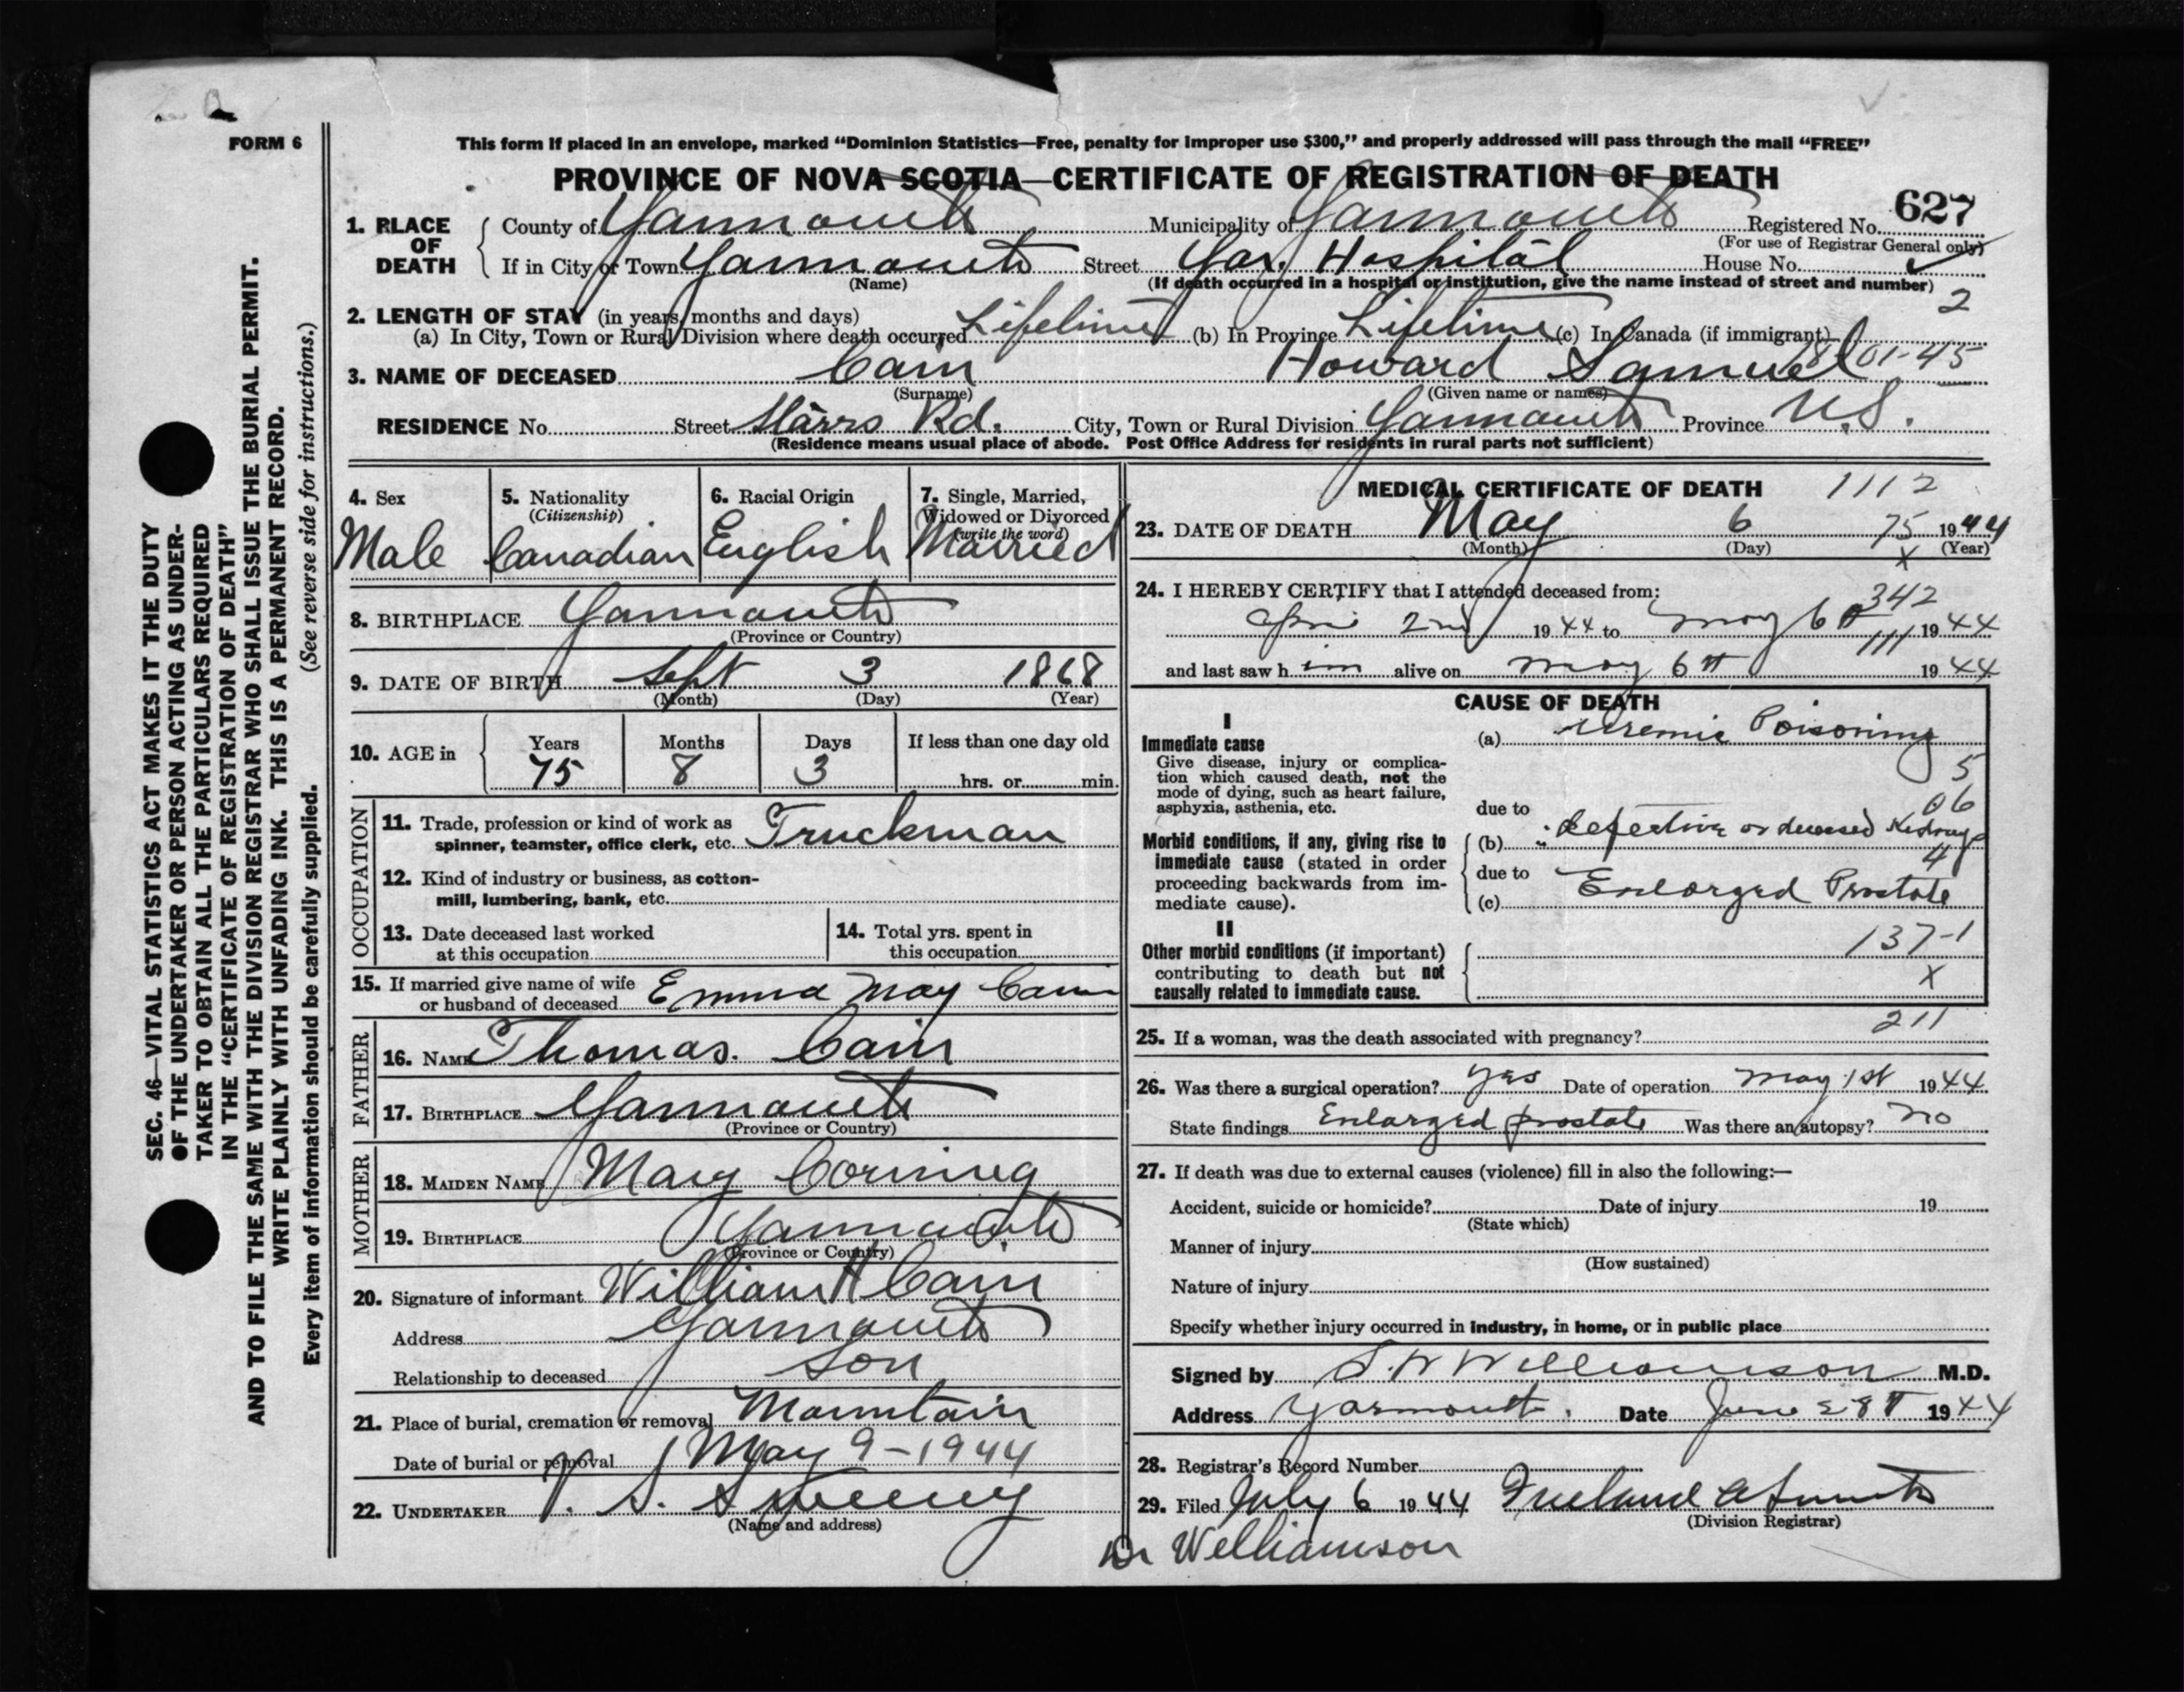 FORM 6
This form if placed in an envelope, marked “Dominion Statistics—Free, penalty for improper use $300,” and properly addressed will pass through the mail “FREE”
PROVINCE OF NOVA SCOTIA—CERTIFICATE OF REGISTRATION OF DEATH
1. PLACE OF DEATH
County of Yarmouth Municipality of Yarmouth Registered No. 627
(For use of Registrar General only)
If in City or Town Yarmouth Street Yar. Hospital House No.
(Name) (If death occurred in a hospital or institution, give the name instead of street and number)
2
2. LENGTH OF STAY (in years, months and days)
(a) In City, Town or Rural Division where death occurred Lifetime (b) In Province Lifetime (c) In Canada (if immigrant)
3. NAME OF DECEASED Cain Howard Samuel
(Surname) (Given name or names)
RESIDENCE No. Street Starrs Rd. City, Town or Rural Division Yarmouth Province N.S.
(Residence means usual place of abode. Post Office Address for residents in rural parts not sufficient)
4. Sex
Male
5. Nationality
(Citizenship)
Canadian
6. Racial Origin
English
7. Single, Married,
Widowed or Divorced
(write the word)
Married
8. BIRTHPLACE Yarmouth
(Province or Country)
9. DATE OF BIRTH Sept 3 1868
(Month) (Day) (Year)
10. AGE in
Years Months Days If less than one day old
75 8 3 hrs. or min.
OCCUPATION
11. Trade, profession or kind of work as
spinner, teamster, office clerk, etc. Truckman
12. Kind of industry or business, as cotton-
mill, lumbering, bank, etc.
13. Date deceased last worked
at this occupation
14. Total yrs. spent in
this occupation
15. If married give name of wife
or husband of deceased Emma May Cain
FATHER
16. NAME Thomas. Cain
17. BIRTHPLACE Yarmouth
(Province or Country)
MOTHER
18. MAIDEN NAME Mary Corning
19. BIRTHPLACE Yarmouth
(Province or Country)
20. Signature of informant William H Cain
Address Yarmouth
Relationship to deceased Son
21. Place of burial, cremation or removal Mountain
Date of burial or removal May 9-1944
22. UNDERTAKER V. S. Sweeny
(Name and address)
MEDICAL CERTIFICATE OF DEATH 1112
23. DATE OF DEATH May 6 75 1944
(Month) (Day) X (Year)
24. I HEREBY CERTIFY that I attended deceased from:
342
April 2nd 1944 to May 6th 1944
111
and last saw h im alive on May 6th 1944
CAUSE OF DEATH
I
Immediate cause
Give disease, injury or complica-
tion which caused death, not the
mode of dying, such as heart failure,
asphyxia, asthenia, etc.
(a) Uremic Poisoning
5
06
due to
Morbid conditions, if any, giving rise to
immediate cause (stated in order
proceeding backwards from im-
mediate cause).
(b) defective or deceased Kidneys
4
due to
(c) Enlarged Prostate
II
Other morbid conditions (if important)
contributing to death but not
causally related to immediate cause.
137-1
X
211
25. If a woman, was the death associated with pregnancy?
26. Was there a surgical operation? Yes Date of operation May 1st 1944
State findings Enlarged prostate Was there an autopsy? no
27. If death was due to external causes (violence) fill in also the following:—
Accident, suicide or homicide? Date of injury 19
(State which)
Manner of injury
(How sustained)
Nature of injury
Specify whether injury occurred in industry, in home, or in public place
Signed by S. W Williamson M.D.
Address Yarmouth. Date June 28th 1944
28. Registrar's Record Number
29. Filed July 6 1944
(Division Registrar)
Dr Williamson
SEC. 46—VITAL STATISTICS ACT MAKES IT THE DUTY
OF THE UNDERTAKER OR PERSON ACTING AS UNDER-
TAKER TO OBTAIN ALL THE PARTICULARS REQUIRED
IN THE “CERTIFICATE OF REGISTRATION OF DEATH”
AND TO FILE THE SAME WITH THE DIVISION REGISTRAR WHO SHALL ISSUE THE BURIAL PERMIT.
WRITE PLAINLY WITH UNFADING INK. THIS IS A PERMANENT RECORD.
Every item of information should be carefully supplied. (See reverse side for instructions.)